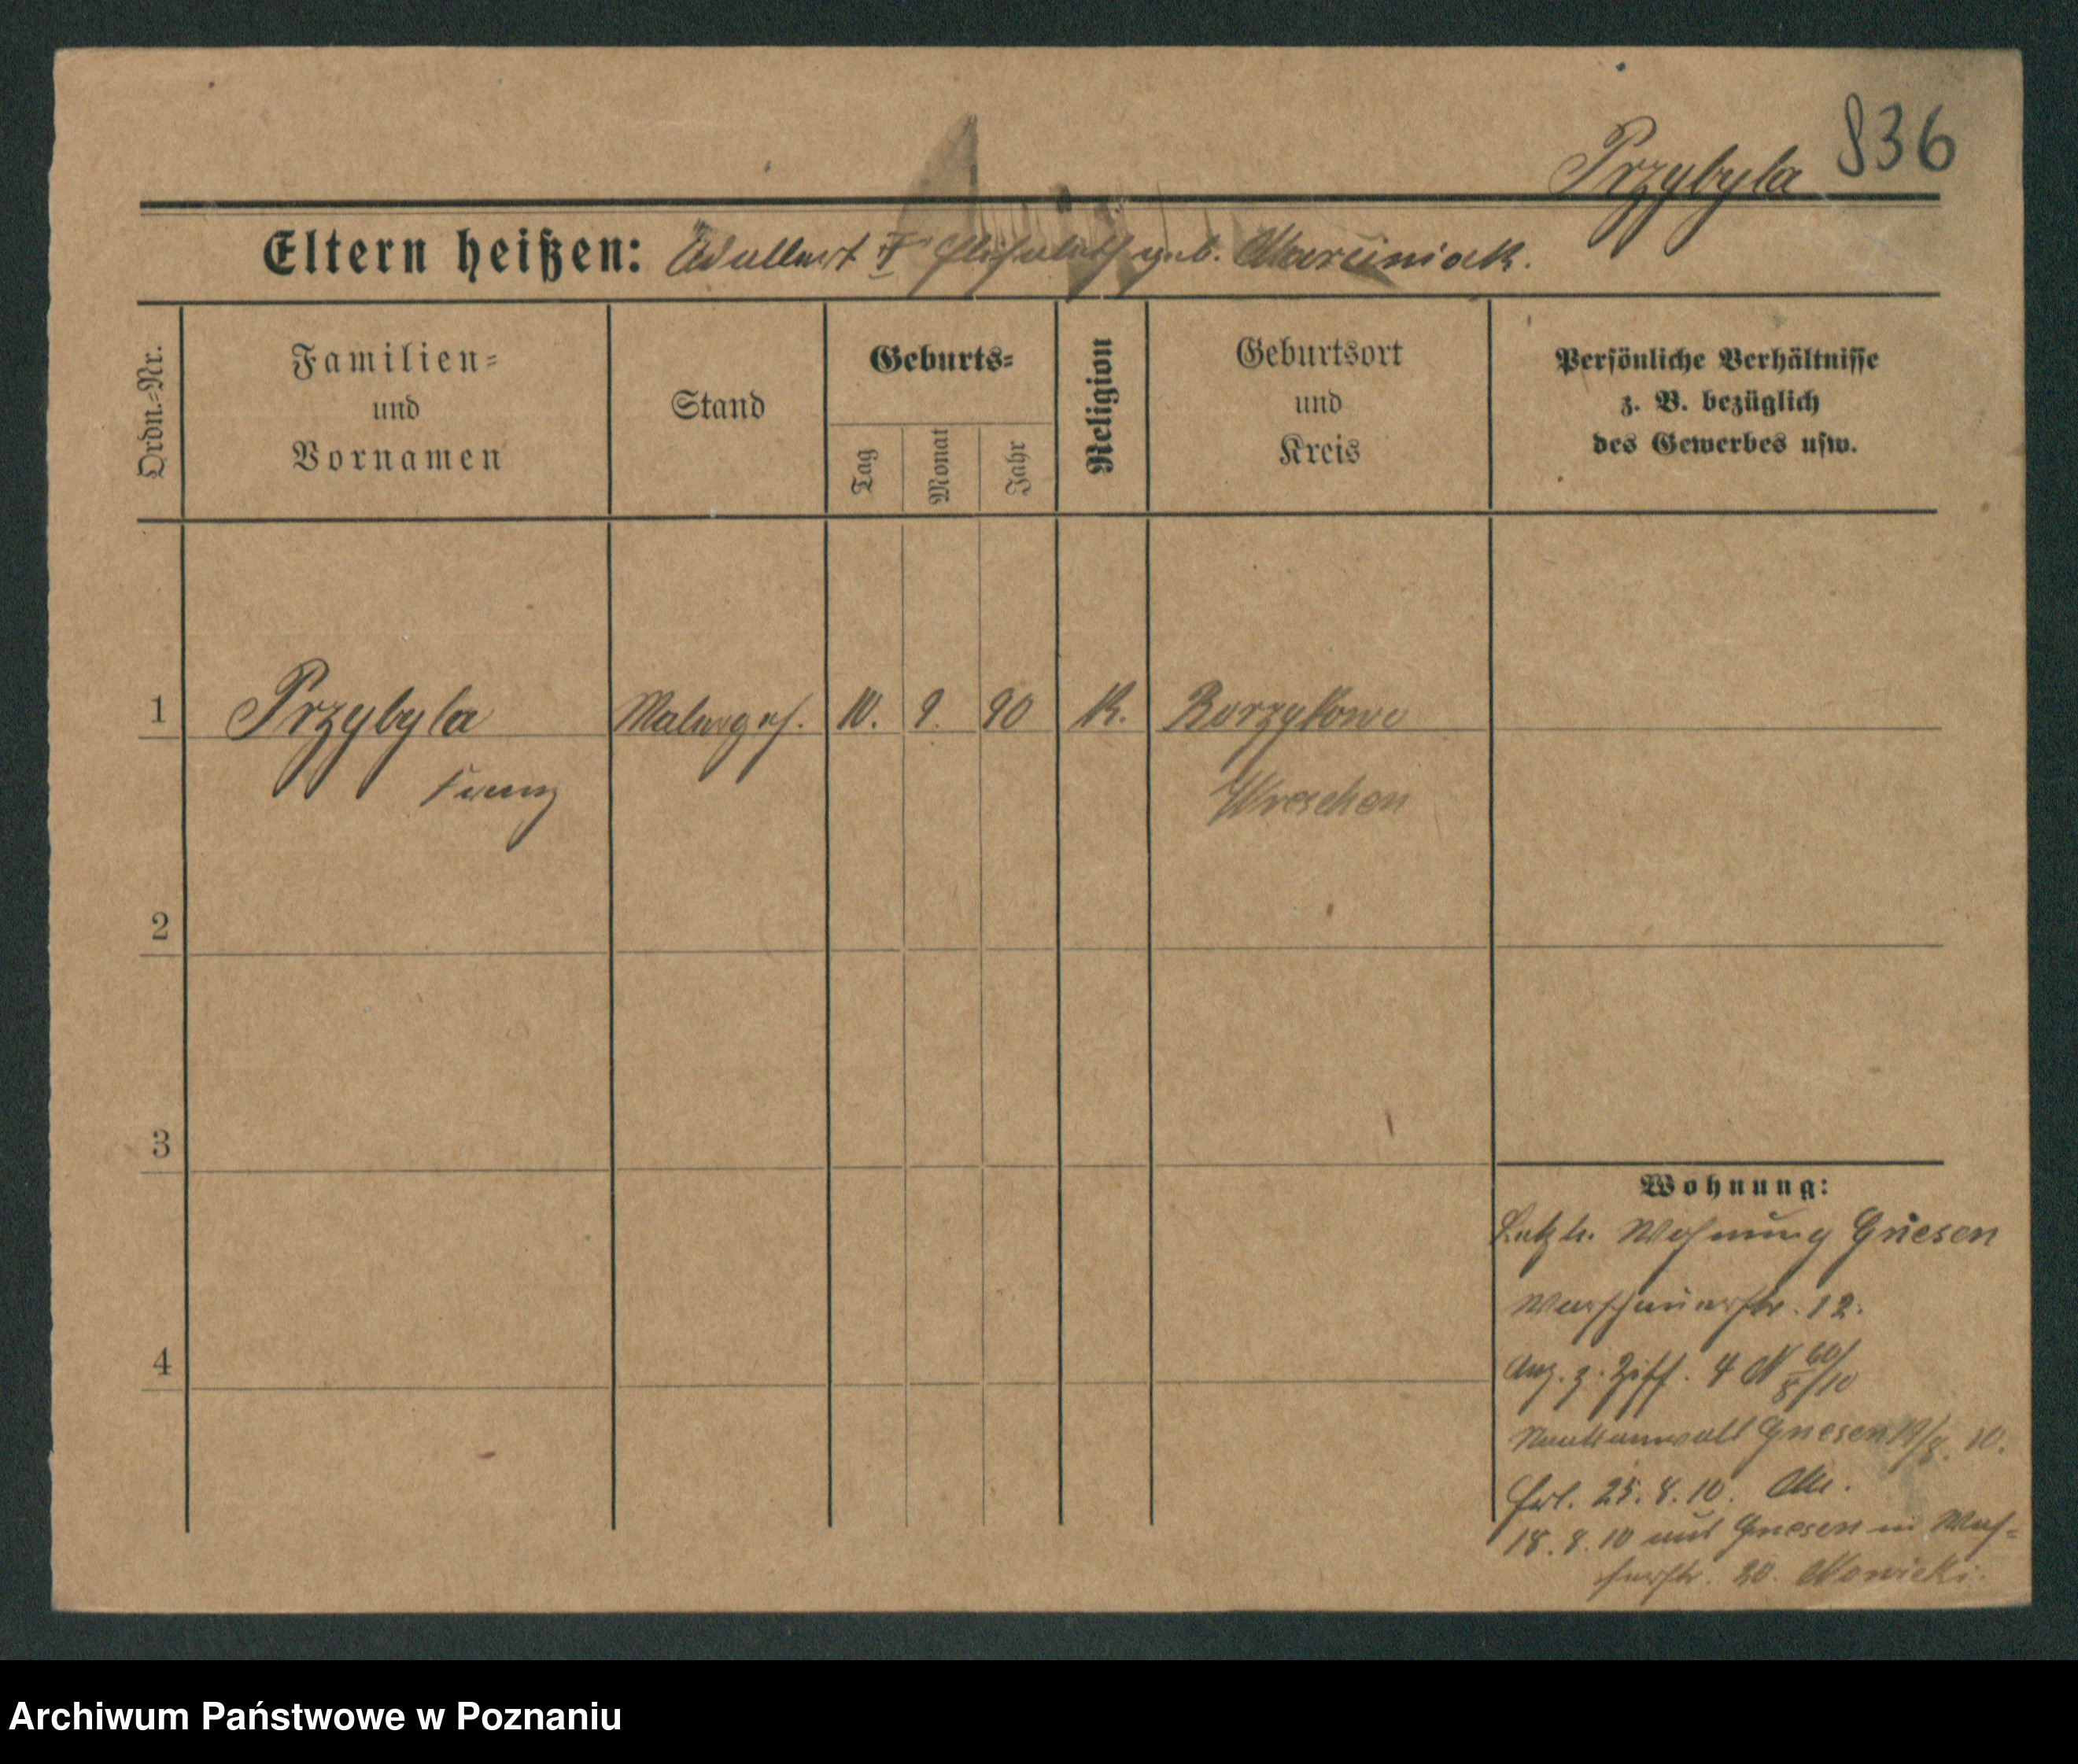 836
Przybyla
Eltern heißen: Adalbert † Elisabeth geb. Marciniak.
Ordn.-Nr.
Familien- und Vornamen
Stand
Geburts-
Tag
Monat
Jahr
Religion
Geburtsort und Kreis
Persönliche Verhältnisse
z. B. bezüglich
des Gewerbes usw.
1 Przybyla Malerges. 10. 9. 90 K. Borzykowo
Franz Wreschen
2
3
4
Wohnung:
Letzte Wohnung Gnesen
Warschauerstr. 12.
Anz. z. Ziff. 4 N 60/8/10
Gnesen 19/8. 10.
Erl. 25. 8. 10.
18. 8. 10 aus Gnesen in
20. Nowicki.
Archiwum Państwowe w Poznaniu